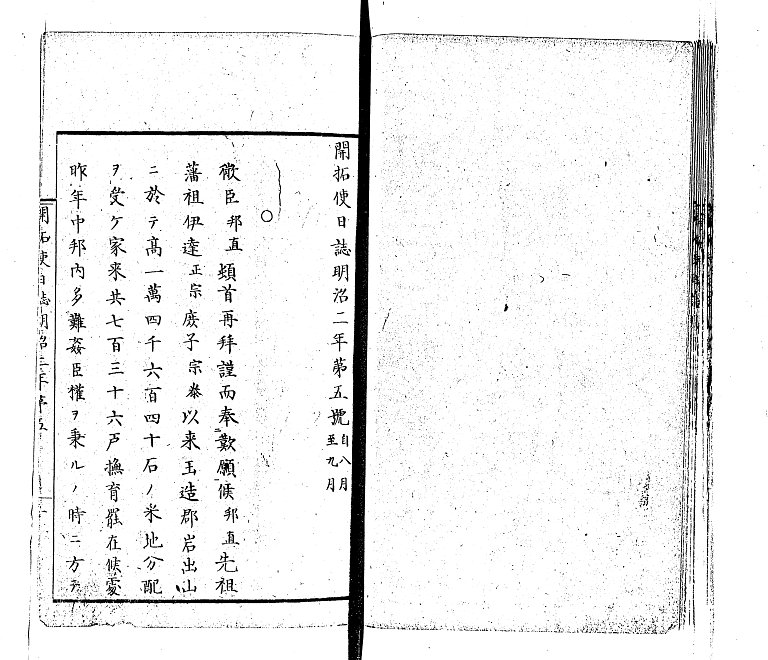 開拓使日誌明治二年第五號 自八月至九月
○
微臣邦直頓首再拜謹而奉歎願候邦直先祖
藩祖伊達正宗庶子宗泰以来玉造郡岩出山
ニ於テ高一萬四千六百四十石ノ米地分配
ヲ受ケ家来共七百三十六戸撫育罷在候處
昨年中邦内多難姦臣權ヲ秉ルノ時ニ方テ
開拓使日誌明治二年第五